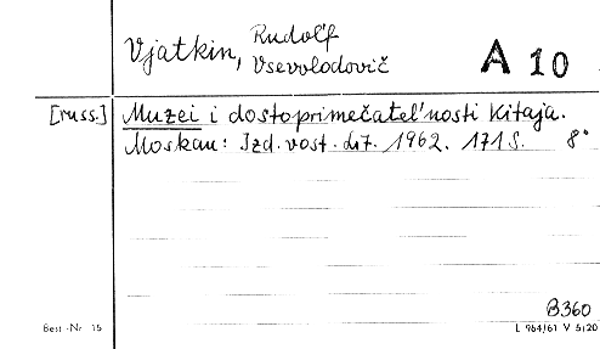 Vjatkin, Rudol'f Vsevolodovič
A 10
[russ.] Muzei i dostoprimečatel'nosti Kitaja.
Moskau: Izd. vost. lit. 1962. 171 S. 8°
B360
Best.-Nr. 15
L 964/61 V 5/20